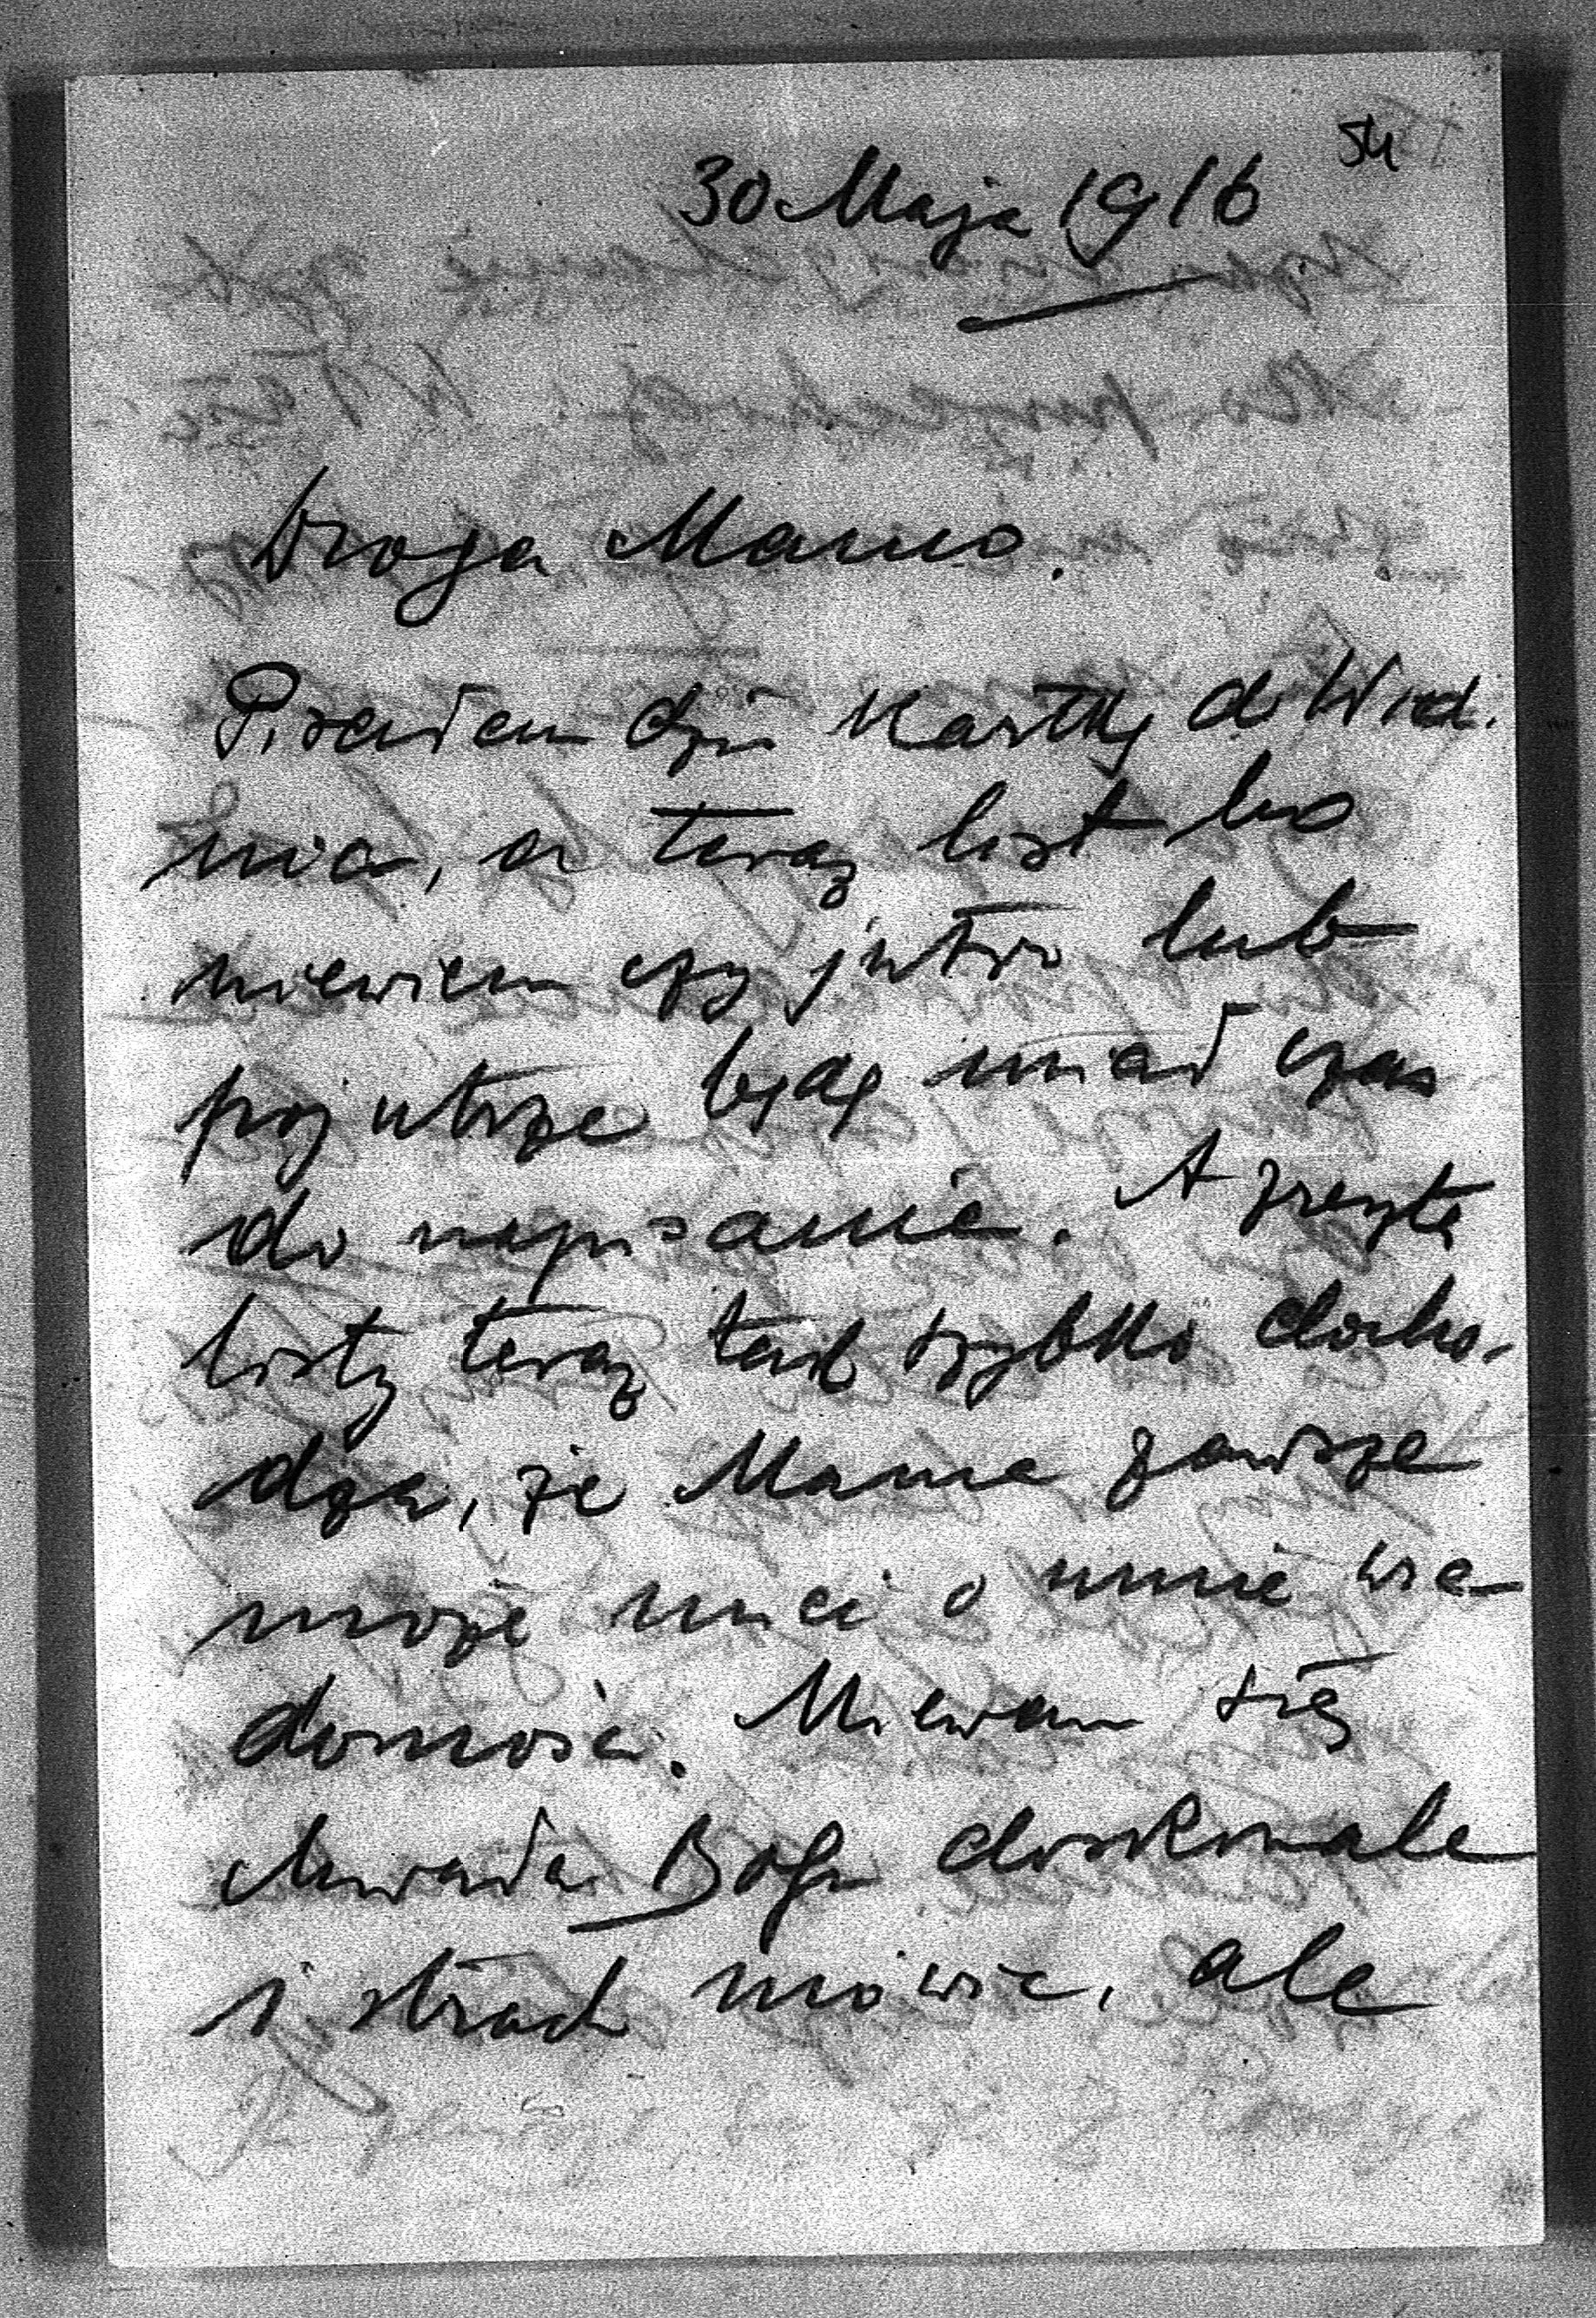 54
30 Maja 1916
Droga Mamo.
Pisałem dziś kartkę do Wied-
nia, a teraz list bo
niewiem czy jutro lub
pojutrze będę miał czas
do napisania. A zresztą
listy teraz tak szybko docho-
dzą, że Mama zawsze
może mieć o mnie wia-
domość. Miewam się
chwała Bogu doskonale
i strach mówić, ale